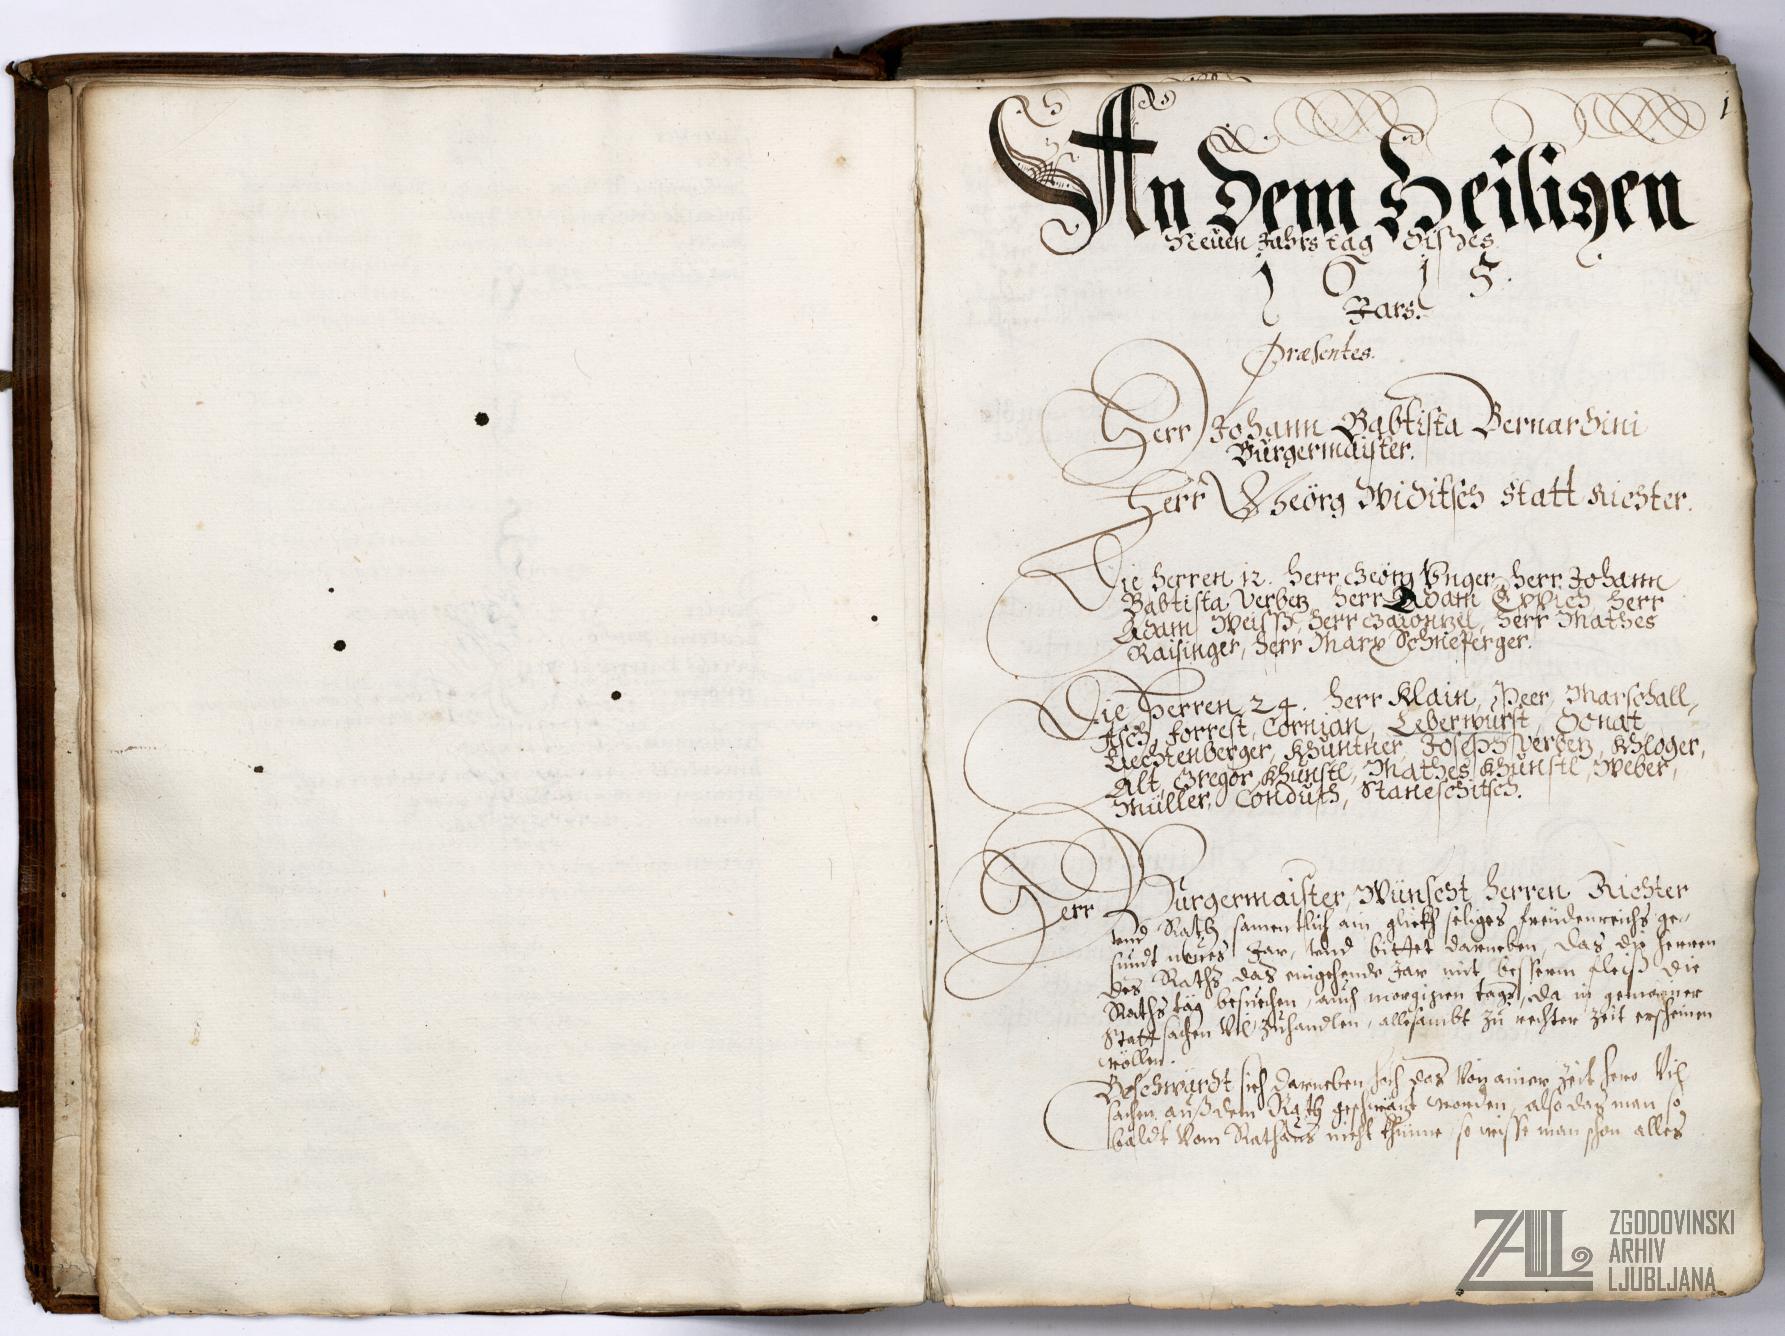 1
An dem Heiligen
Neuen Jahrs tag dises
1 6 1 5.
Jars.
Præsentes.
Herr Johann Babtista Bernardini
Burgermaister.
Herr Gheörg Widitsch Statt Richter.
Die Herren 12. Herr Georg Vnger, Herr Johann
Babtista Verbetz, Herr Adam Eppich, Herr
Adam Weiss, Herr, Herr Mathes
Raisinger, Herr Marx Schnieperger.
Die Herren 24. Herr Klain, Peer, Marschall,
Forrest, Cornian, Leberwurst, Donat
Liechtenberger, Khuntner, Joseph Verbetz, Khloger,
Alt, Gregor Khunstl, Mathes Khunstl, Weber,
Müller, Stareschitsch.
Herr Burgermaister, Wünscht Herren Richter
vnd Rath samentlich ain glickh seliges freudenreichs ge-
sundt neues Jar, vnd bittet darneben, das die Herren
des Raths das eingehende Jar mit besserm fleiß die
Raths tag besuechen, auch morgigen tags, da in gemainer
Statt sachen vil zuhandlen, allesambt zu rechter zeit erscheinen
wöllen.
Beschwärdt sich darneben das von ainer zeit hero vil
sachen auß dem Rath geschwäzt worden, also das man so
baldt vom Rathaus nicht khumme, so wisse man schon alles
ZAL
ZGODOVINSKI
ARHIV
LJUBLJANA